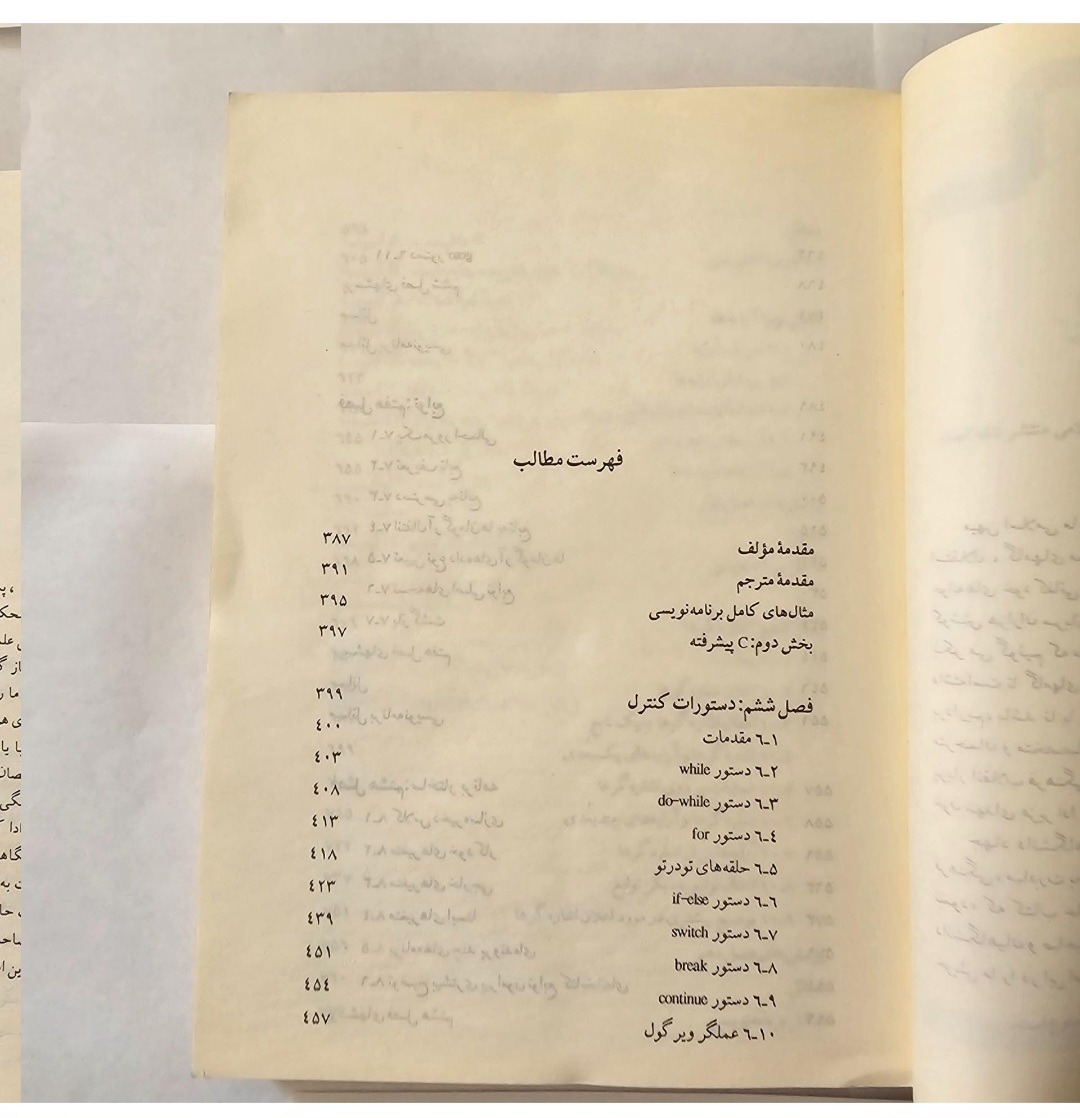 فهرست مطالب
مقدمهٔ مؤلف ۳۸۷
مقدمهٔ مترجم ۳۹۱
مثال‌های کامل برنامه‌نویسی ۳۹۵
بخش دوم: C پیشرفته ۳۹۷
فصل ششم: دستورات کنترل ۳۹۹
٦-۱ مقدمات ٤۰۰
٦-۲ دستور while ٤۰۳
٦-۳ دستور do-while ٤۰۸
٦-٤ دستور for ٤۱۳
٦-۵ حلقه‌های تودرتو ٤۱۸
٦-٦ دستور if-else ٤۲۳
٦-۷ دستور switch ٤۳۹
٦-۸ دستور break ٤۵۱
٦-۹ دستور continue ٤۵٤
٦-۱۰ عملگر ویرگول ٤۵۷